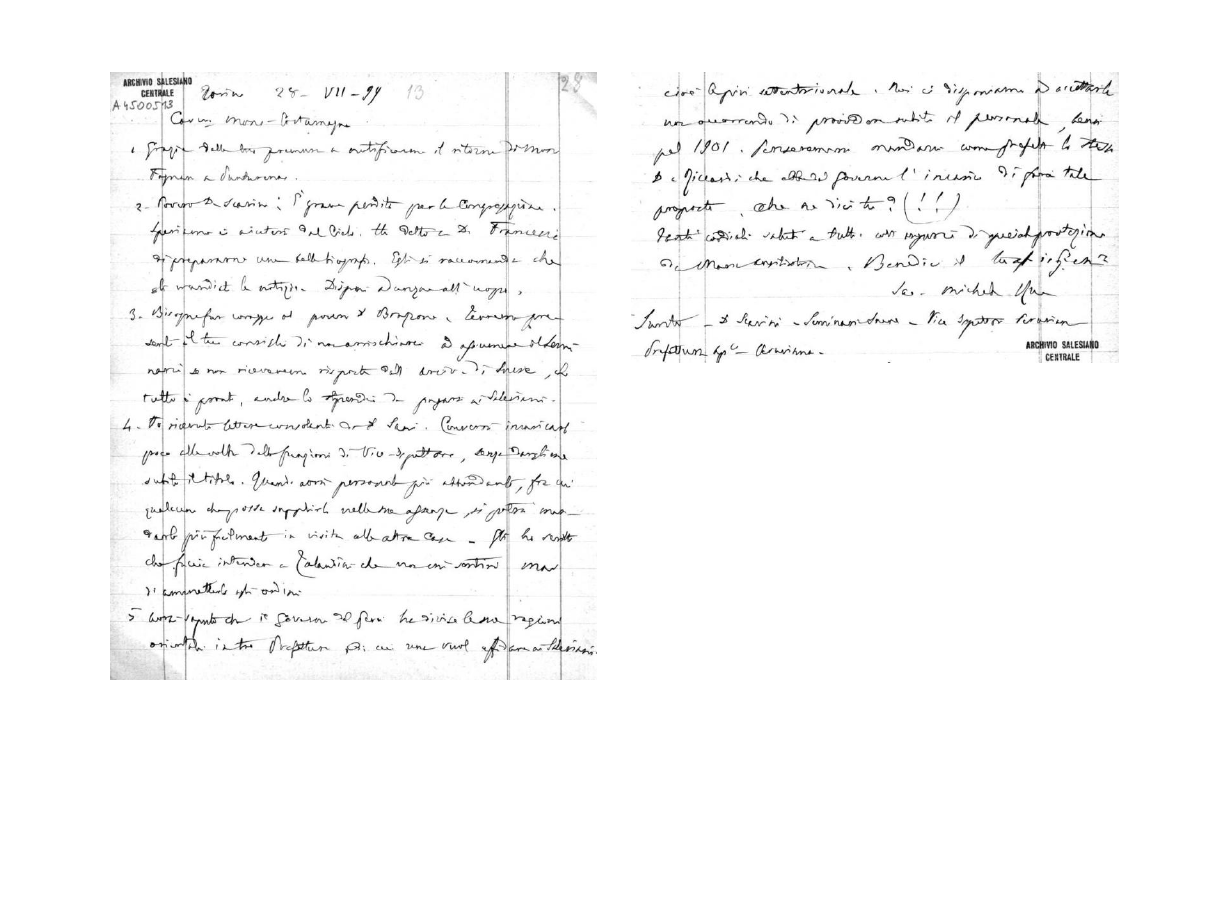 ARCHIVIO SALESIANO
CENTRALE
A4500513
28
Torino 28 - VII - 99 13
Car.mo Mons. Costamagna
1 Grazie della tua premura a notificarmi il ritorno di Mons
Fagnan a Puntarenas.
2 - Povero D. Scavini! È grave perdita per la Congregazione.
Speriamo ci aiuterà dal Cielo. Ho detto a D. Francesia
di prepararne una bella biografia. Egli si raccomanda che
gli mandiate le notizie. Disponi adunque all'uopo.
3 - Bisogna far coraggio al povero D. Borgone.
il tuo consiglio di non arrischiare ad assumere il Semi-
nario se non riceveremo risposta dall' di Sucre, che
tutto è pronto, anche lo stipendio da pagarsi ai Salesiani.
4 - Ho ricevuto lettere consolanti da D. Conviene incaricarlo
poco alla volta delle funzioni di Vice-Ispettore, senza dargliene
subito il titolo. Quando avrà personale più abbondante, fra cui
qualcuno che possa supplirlo nelle sue assenze, si potrà man-
darlo più facilmente in visita alle altre Case - Gli ho scritto
che faccia intendere a che non
di ammetterlo agli ordini
5 che il Governo del Perù ha diviso le sue regioni
orientali in tre Prefetture di cui una vuol affidare ai Salesiani.
cioè la più settentrionale. Noi ci disponiamo ad accettarla
non occorrendo di provvedere subito il personale, bensì
pel 1901. Penseremmo mandare come prefetto lo stesso
D. Riccardi che ebbe dal Governo l'incarico di fare tale
proposta. Che ne dici tu? (!!)
Tanti cordiali saluti a tutti con auguri di special protezione
di Maria Ausiliatrice. Benedici il tuo in G. e M.
Sac. Michele Rua
Sunto - D. Scavini - Seminario Sucre - Vice Ispettore Peruviano
Prefettura Ap.ca Peruviana.
ARCHIVIO SALESIANO
CENTRALE